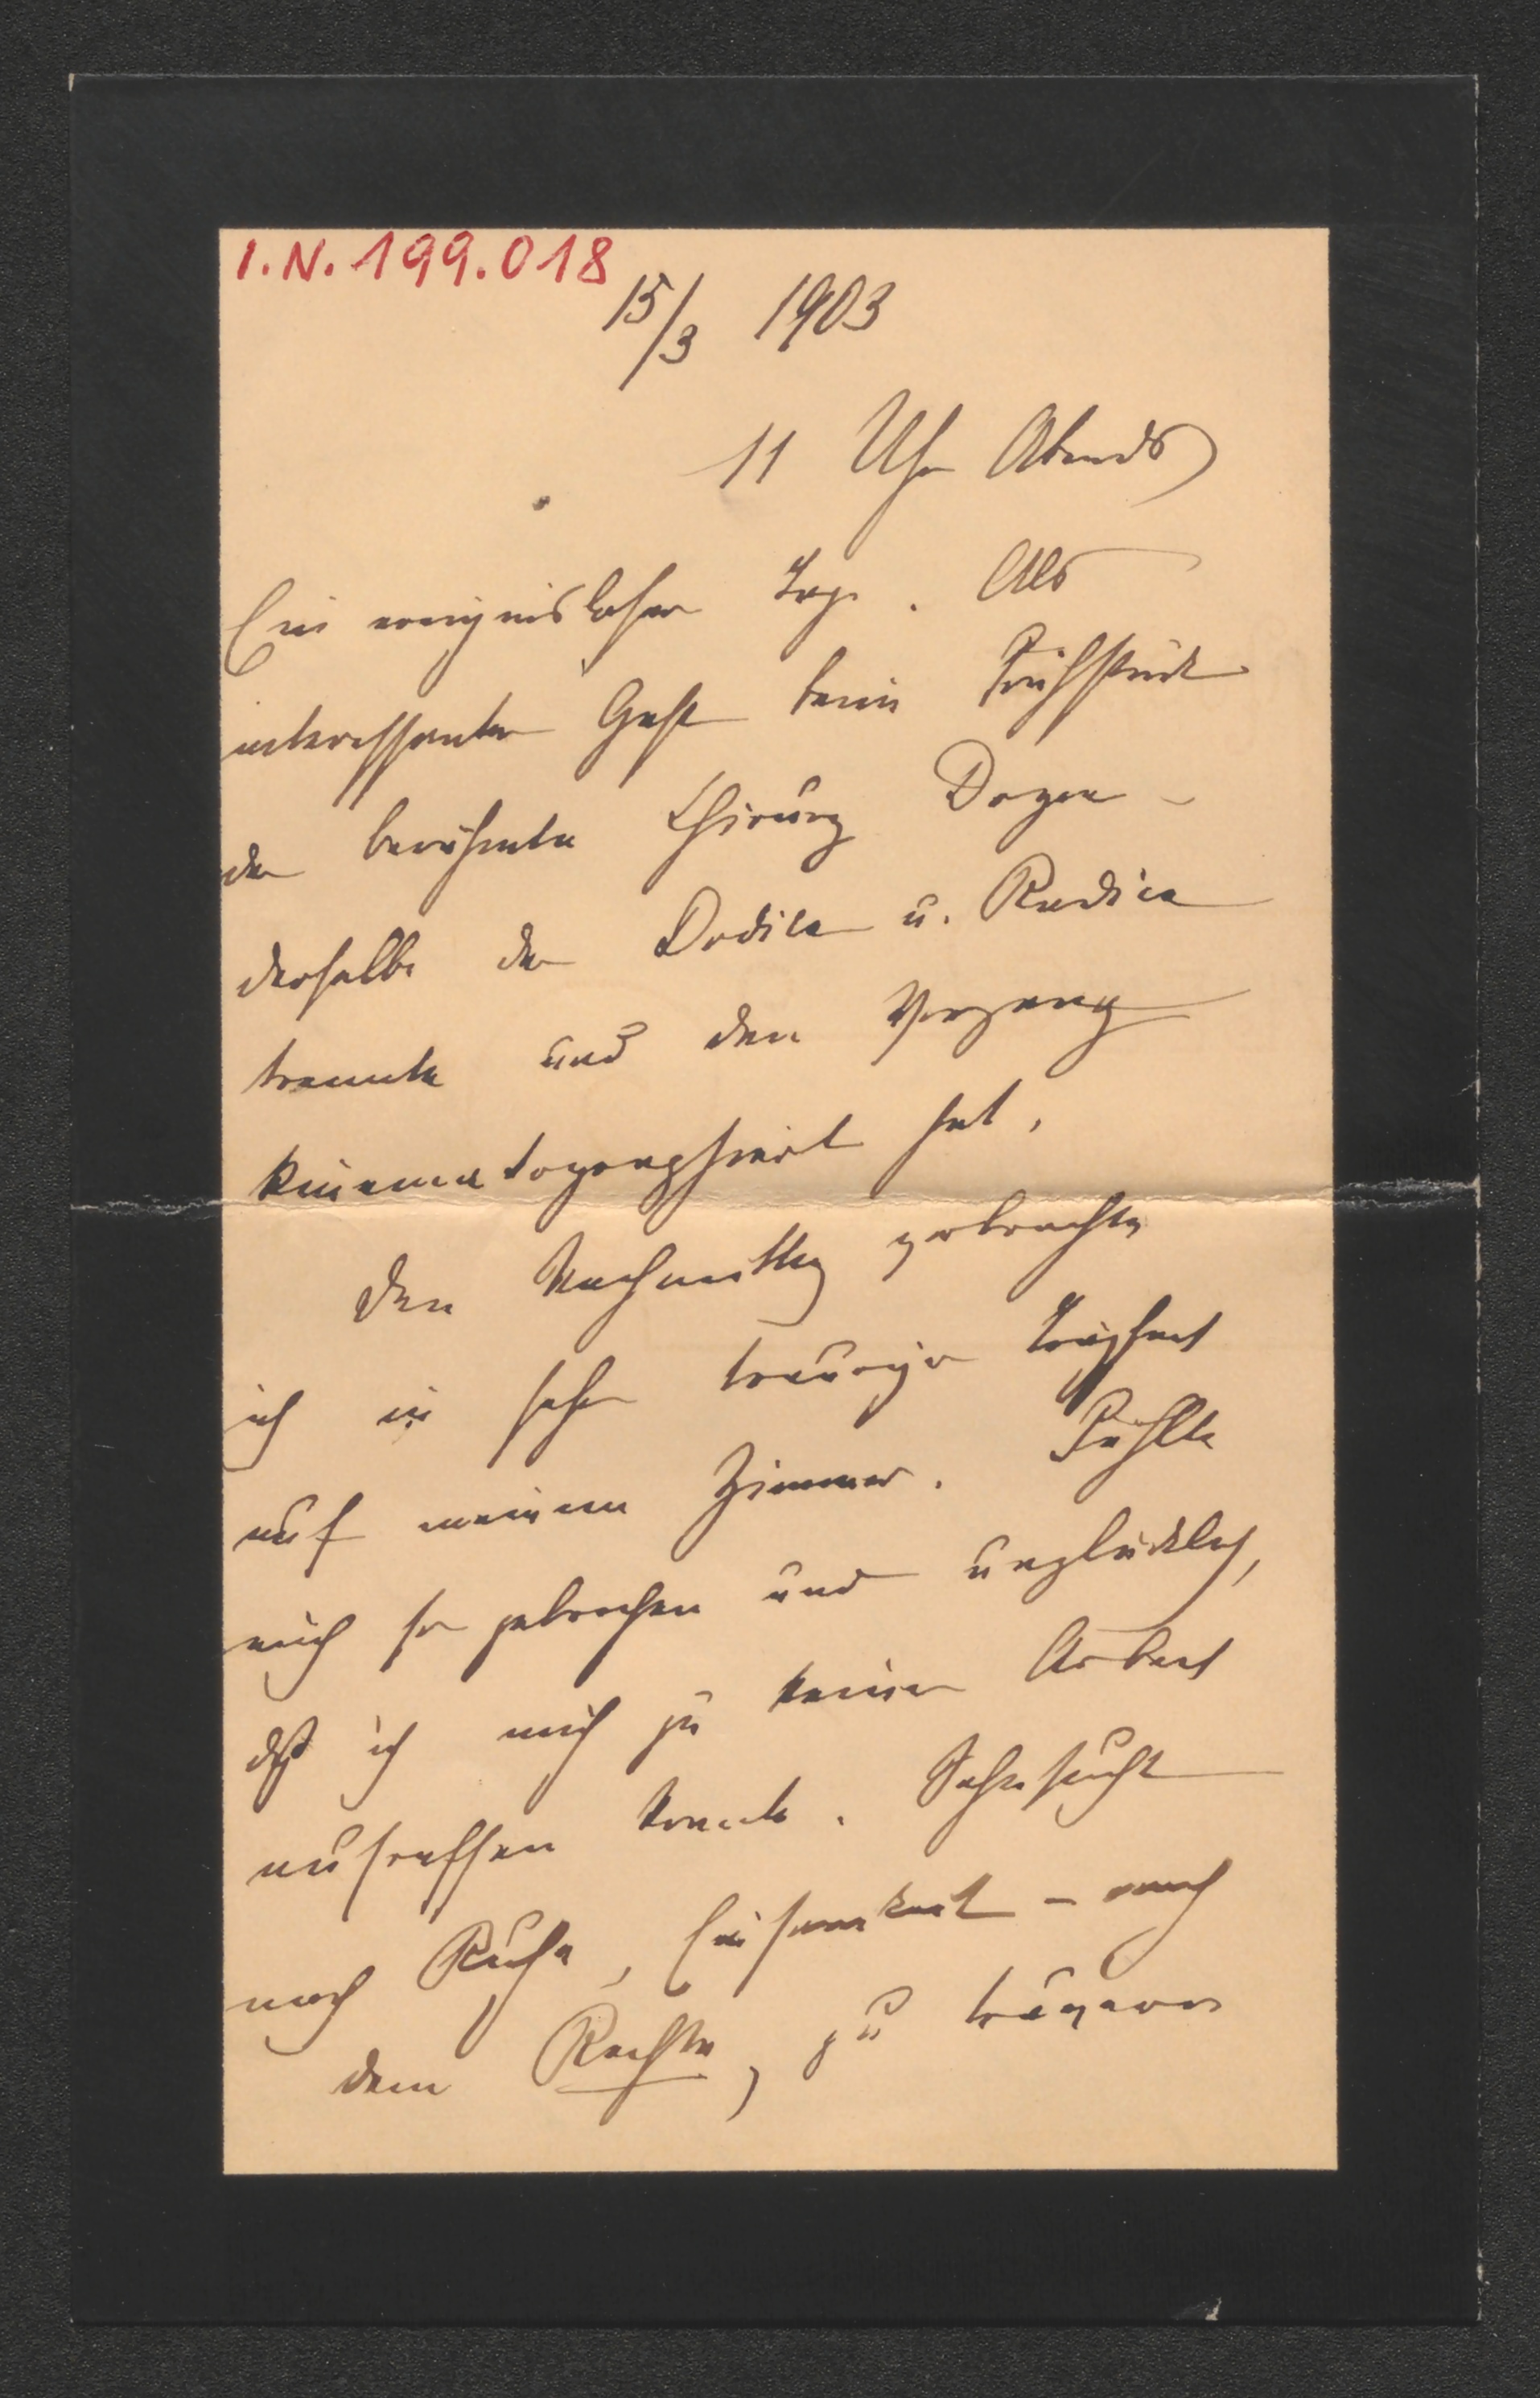 I.N. 199.018
15/3 1903
11 Uhr Abends
Ein ereignisloser Tag. Als
interessanter Gast beim Frühstück
der berühmte Chirurg Doyen –
derselbe der Dodica u. Radica
trennte und den Vorgang
kinematographiert hat.
Den Nachmittag verbrachte
ich in sehr trauriger Trägheit
auf meinem Zimmer. Fühlte
mich so gebrochen und unglücklich,
daß ich mich zu keiner Arbeit
aufraffen konnte. Sehnsucht
nach Ruhe, Einsamkeit – nach
dem Rechte, zu trauern